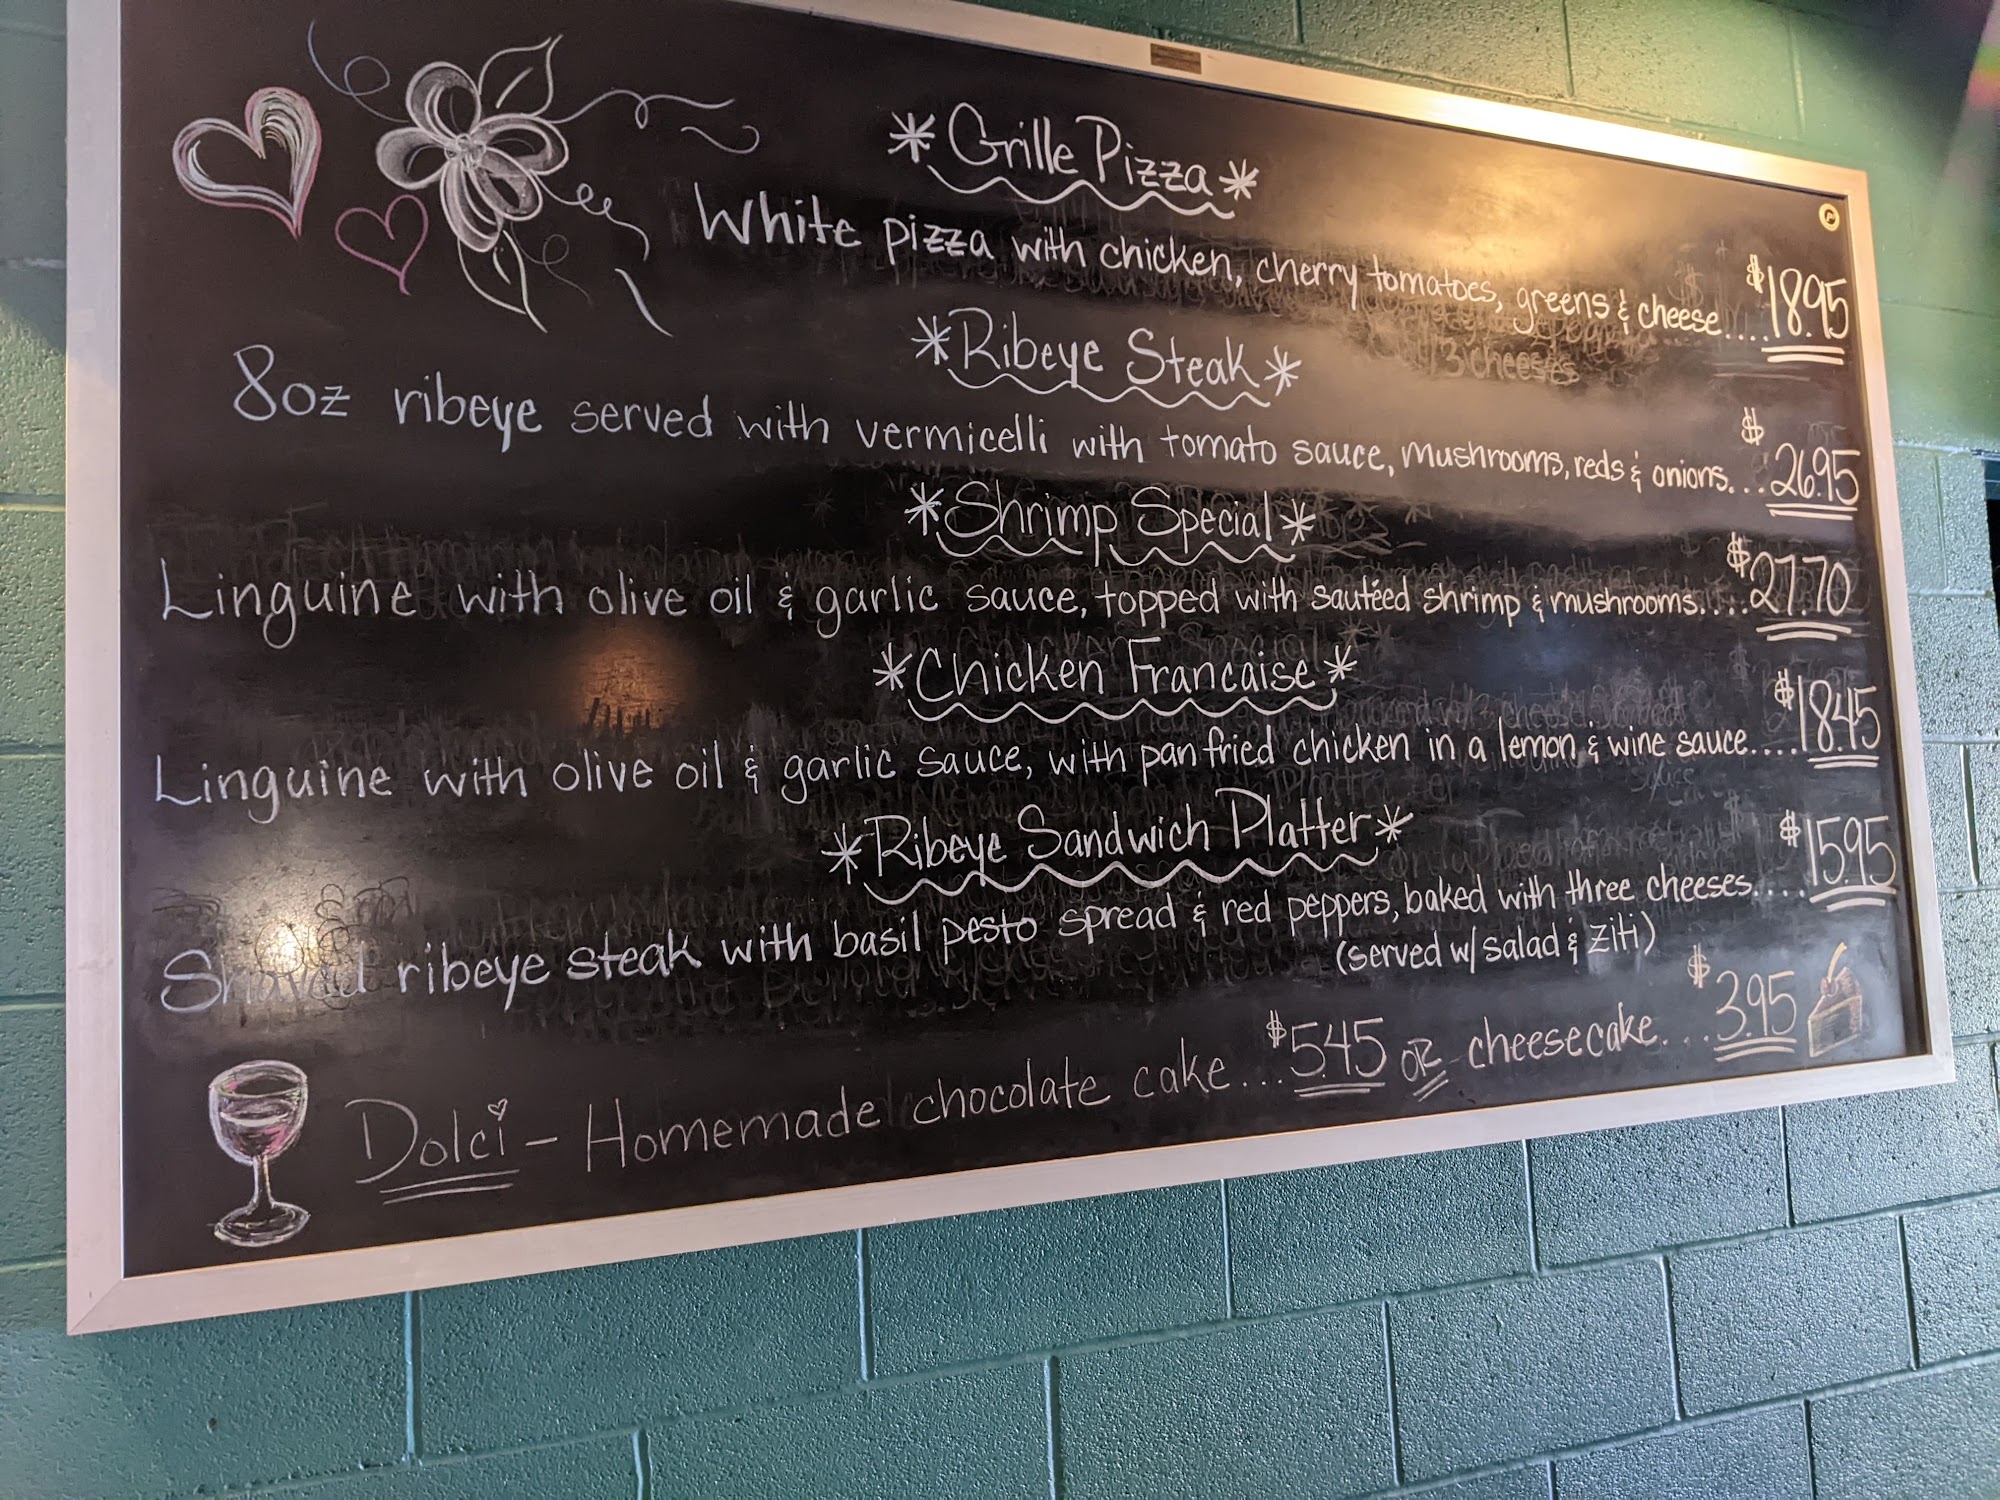 *Grille Pizza*
White pizza with chicken, cherry tomatoes, greens & cheese.... $18.95
*Ribeye Steak*
8oz ribeye served with vermicelli with tomato sauce, mushrooms, reds & onions... $26.95
*Shrimp Special*
Linguine with olive oil & garlic sauce, topped with sautéed shrimp & mushrooms.... $27.70
*Chicken Francaise*
Linguine with olive oil & garlic sauce, with pan fried chicken in a lemon & wine sauce.... $18.45
*Ribeye Sandwich Platter*
Shaved ribeye steak with basil pesto spread & red peppers, baked with three cheeses.... $15.95
(served w/ salad & ziti)
Dolci - Homemade chocolate cake... $5.45 OR cheesecake... $3.95